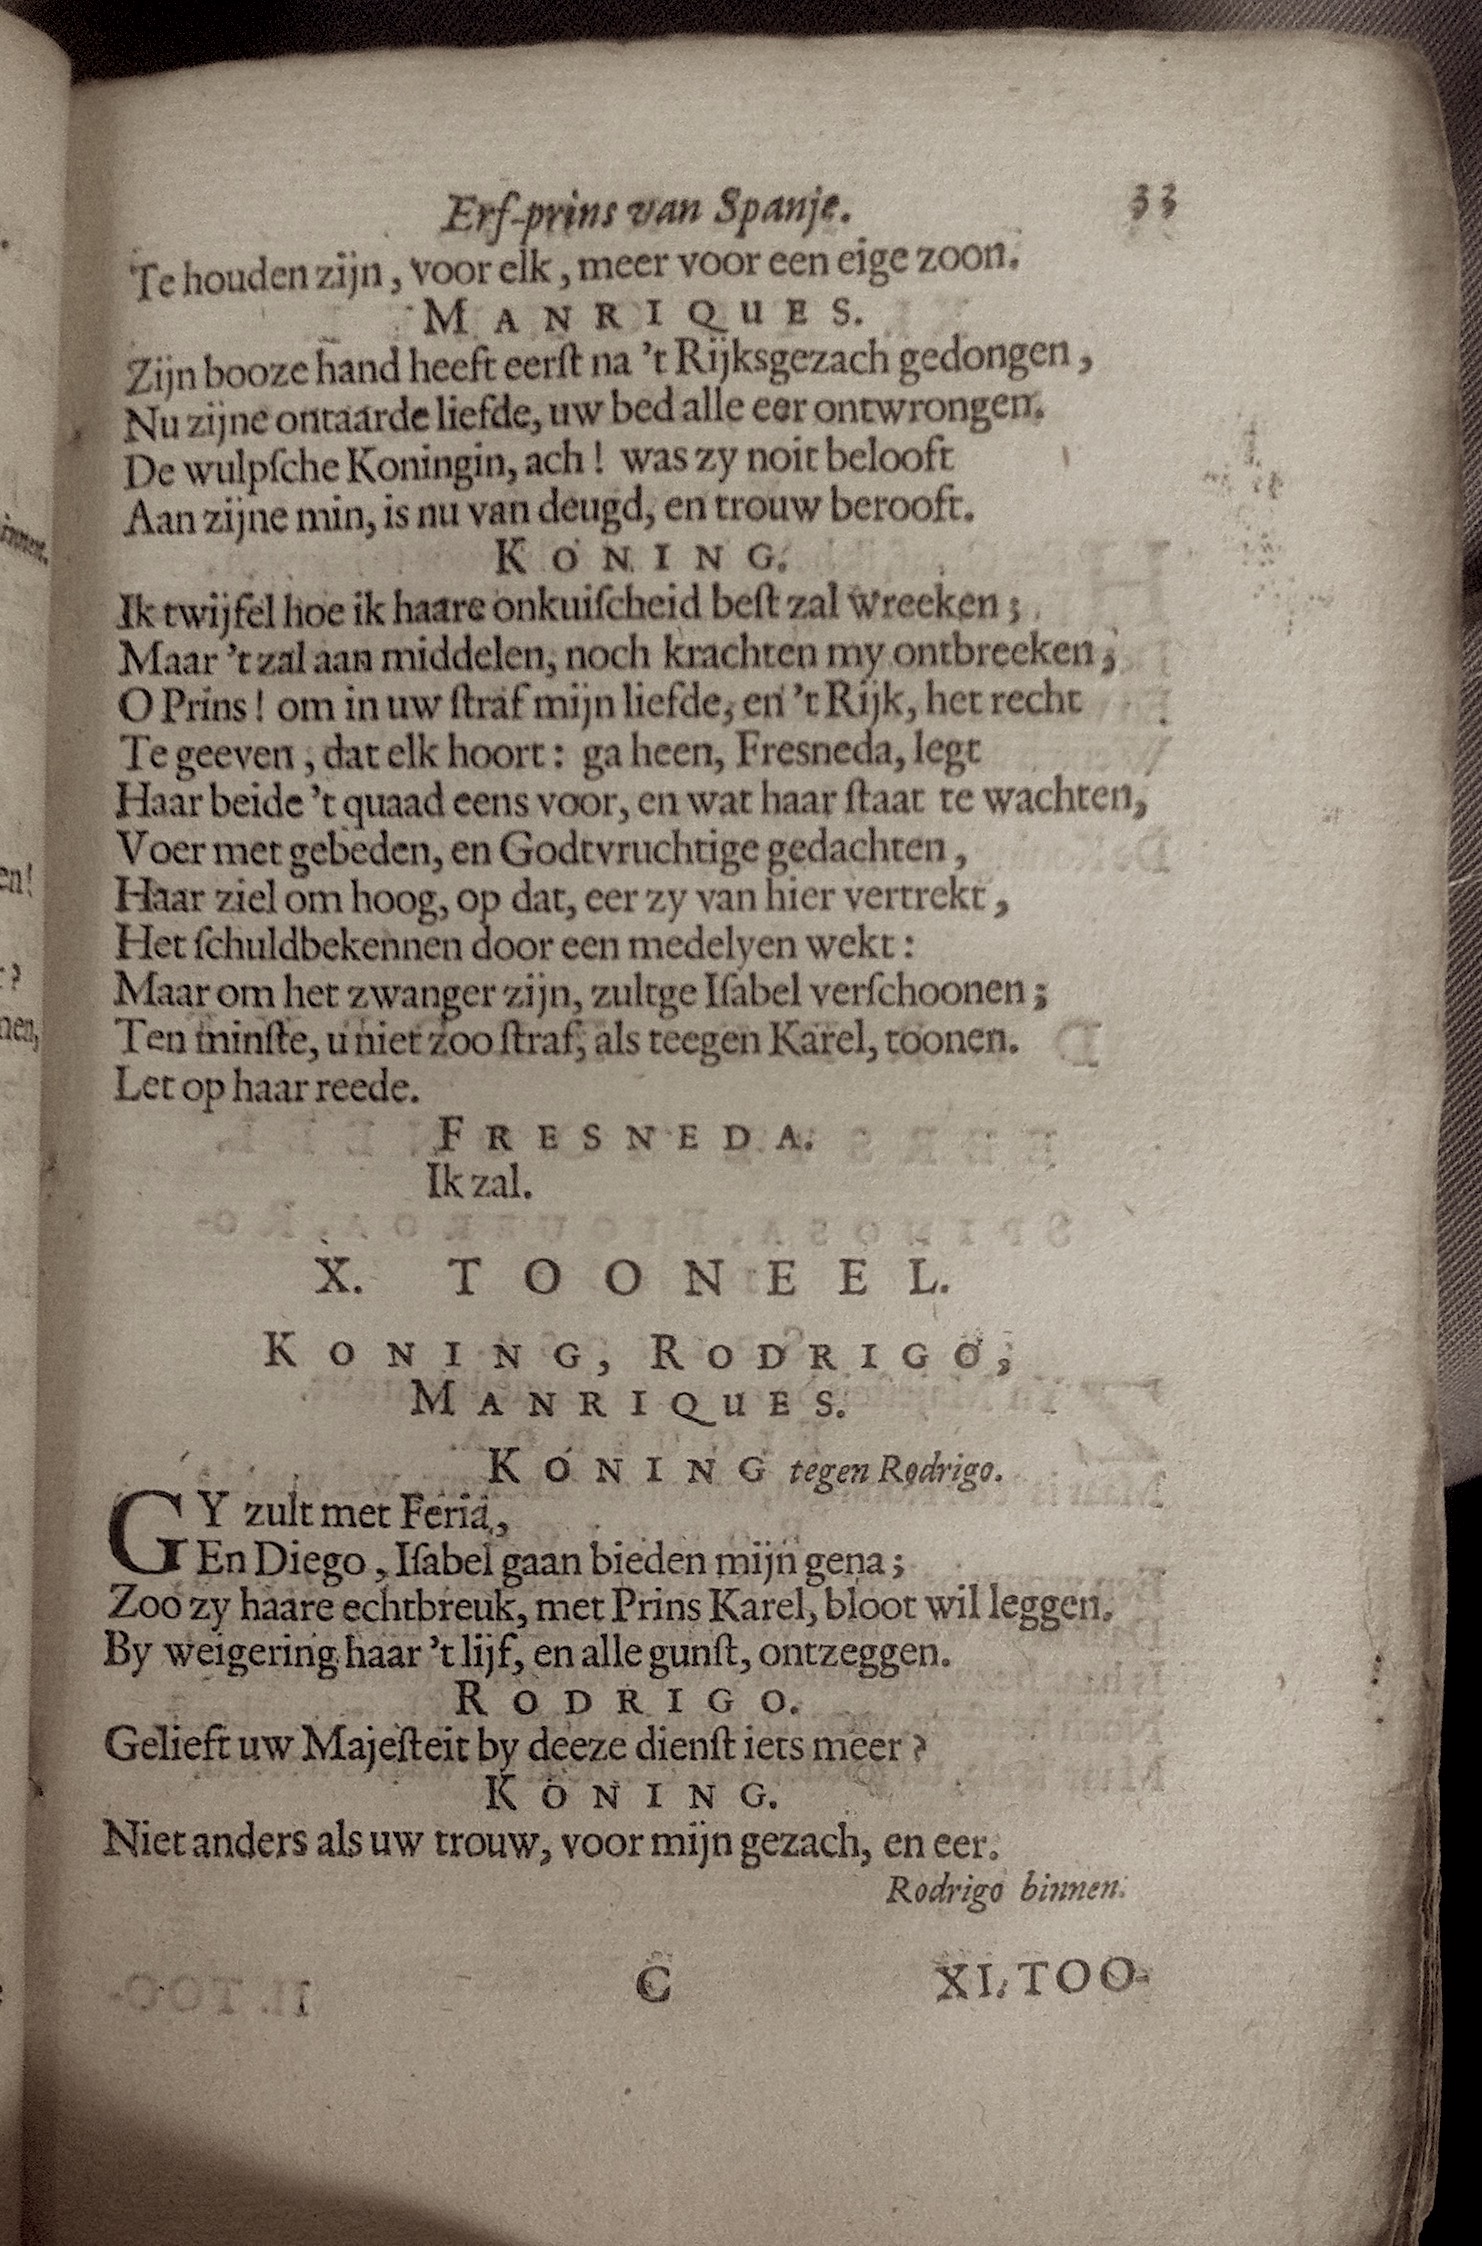 Erf-prins van Spanje. 33
Te houden zijn, voor elk, meer voor een eige zoon.
MANRIQUES.
Zijn booze hand heeft eerſt na 't Rijksgezach gedongen,
Nu zijne ontaarde liefde, uw bed alle eer ontwrongen.
De wulpſche Koningin, ach! was zy noit belooft
Aan zijne min, is nu van deugd, en trouw berooft.
KONING.
Ik twijfel hoe ik haare onkuiſcheid beſt zal wreeken;
Maar 't zal aan middelen, noch krachten my ontbreeken,
O Prins! om in uw ſtraf mijn liefde, en 't Rijk, het recht
Te geeven, dat elk hoort: ga heen, Fresneda, legt
Haar beide 't quaad eens voor, en wat haar ſtaat te wachten,
Voer met gebeden, en Godtvruchtige gedachten,
Haar ziel om hoog, op dat, eer zy van hier vertrekt,
Het ſchuldbekennen door een medelyen wekt:
Maar om het zwanger zijn, zultge Iſabel verſchoonen;
Ten minſte, u niet zoo ſtraf, als teegen Karel, toonen.
Let op haar reede.
FRESNEDA.
Ik zal.
X. TOONEEL.
KONING, RODRIGO,
MANRIQUES.
KONING tegen Rodrigo.
GY zult met Feria,
En Diego, Iſabel gaan bieden mijn gena;
Zoo zy haare echtbreuk, met Prins Karel, bloot wil leggen.
By weigering haar 't lijf, en alle gunſt, ontzeggen.
RODRIGO.
Gelieft uw Majeſteit by deeze dienſt iets meer?
KONING.
Niet anders als uw trouw, voor mijn gezach, en eer.
Rodrigo binnen.
C XI. TOO-